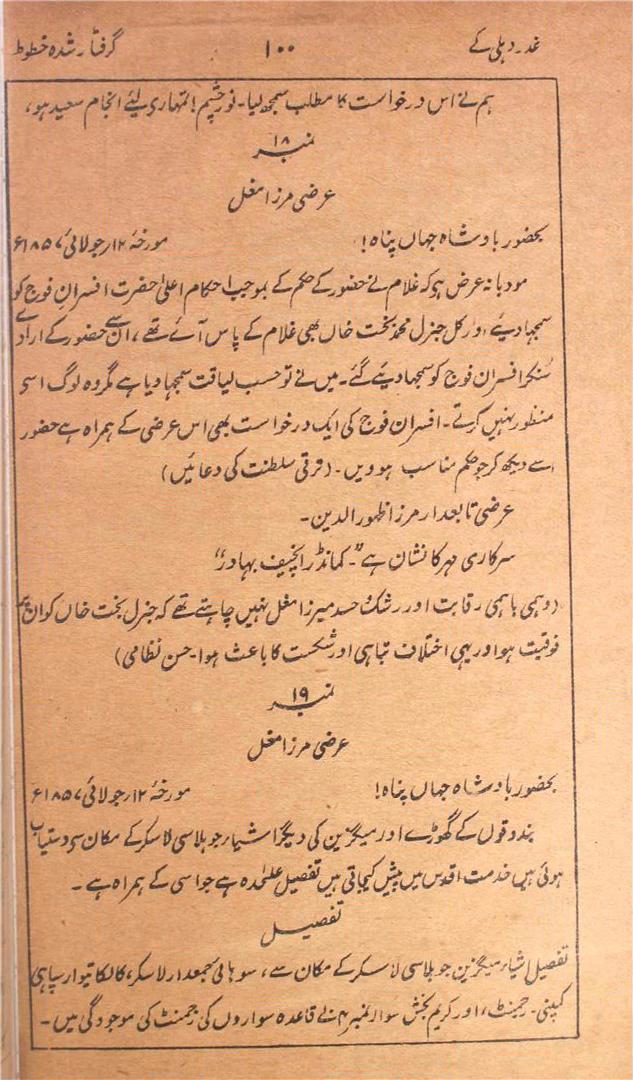 غدر دہلی کے ۱۰۰ گرفتار شدہ خطوط
ہم نے اس درخواست کا مطلب سمجھ لیا۔ نورچشم! تمہاری لئے انجام سعید ہو،
نمبر ۱۸
عرضی مرزا مغل
بحضور بادشاہ جہاں پناہ! مورخہٴ ۱۲ر جولائی ۱۸۵۷ء
مودبانہ عرض ہی کہ غلام نے حضور کے حکم کے بموجب احکام اعلیٰ حضرت افسرانِ فوج کو
سمجھا دیئے اور کل جنرل محمد بخت خاں بھی غلام کے پاس آئے تھے، ان سے حضور کے ارادے
سُنکر افسرانِ فوج کو سمجھا دیئے گئے۔ میں نے تو حسب لیاقت سمجھا دیا ہے مگر وہ لوگ اسی
منظور نہیں کرتے۔ افسران فوج کی ایک درخواست بھی اس عرضی کے ہمراہ ہے حضور
اسے دیکھ کر جو حکم مناسب ہو ویں۔ (ترقی سلطنت کی دعائیں)
عرضی تابعدار مرزا ظہور الدین۔
سرکاری مہر کا نشان ہے "۔ کمانڈر انچیف بہادر"
(وہی باہمی رقابت اور رشک و حسد میرزا مغل نہیں چاہتے تھے کہ جنرل بخت خاں کو ان پر
فوقیت ہو اور یہی اختلاف تباہی اور شکست کا باعث ہوا۔ حسن نظامی)
نمبر ۱۹
عرضی مرزا مغل
بحضور بادشاہ جہاں پناہ! مورخہٴ ۱۲ر جولائی ۱۸۵۷ء
بندوقوں کے گھوڑے اور میگزین کی دیگر اشیار جو بلاسی لاسکر کے مکان سی دستیاب
ہوئی ہیں خدمت اقدس میں پیش کیجاتی ہیں تفصیل علٰحدہ ہے جو اسی کے ہمراہ ہے۔
تفصیل
تفصیل اشیار میگزین جو بلاسی لاسکر کے مکان سے، سوہائی جمعدار لاسکر، کالکا تیوار سپاہی
کمپنی۔ رجمنٹ، اور کریم بخش سوار نمبر ۴ نے قاعدہ سواروں کی رجمنٹ کی موجودگی میں۔